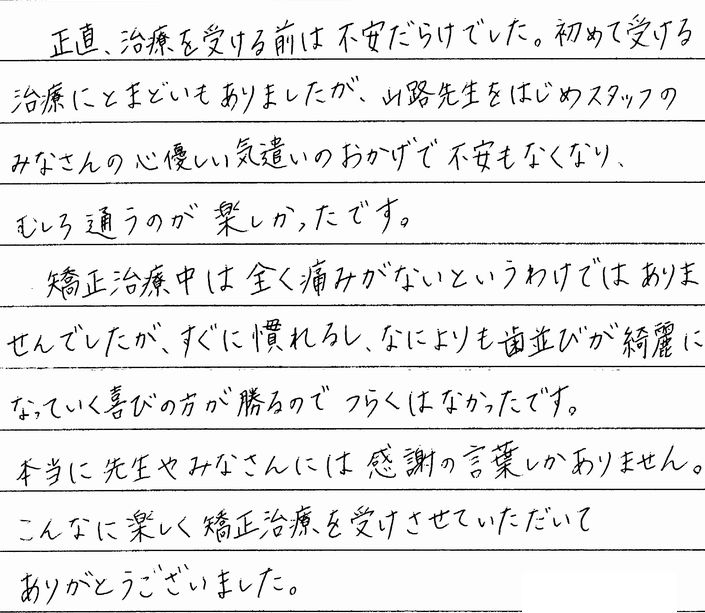 正直、治療を受ける前は不安だらけでした。初めて受ける
治療にとまどいもありましたが、山路先生をはじめスタッフの
みなさんの心優しい気遣いのおかげで不安もなくなり、
むしろ通うのが楽しかったです。
矯正治療中は全く痛みがないというわけではありま
せんでしたが、すぐに慣れるし、なによりも歯並びが綺麗に
なっていく喜びの方が勝るのでつらくはなかったです。
本当に先生やみなさんには感謝の言葉しかありません。
こんなに楽しく矯正治療を受けさせていただいて
ありがとうございました。